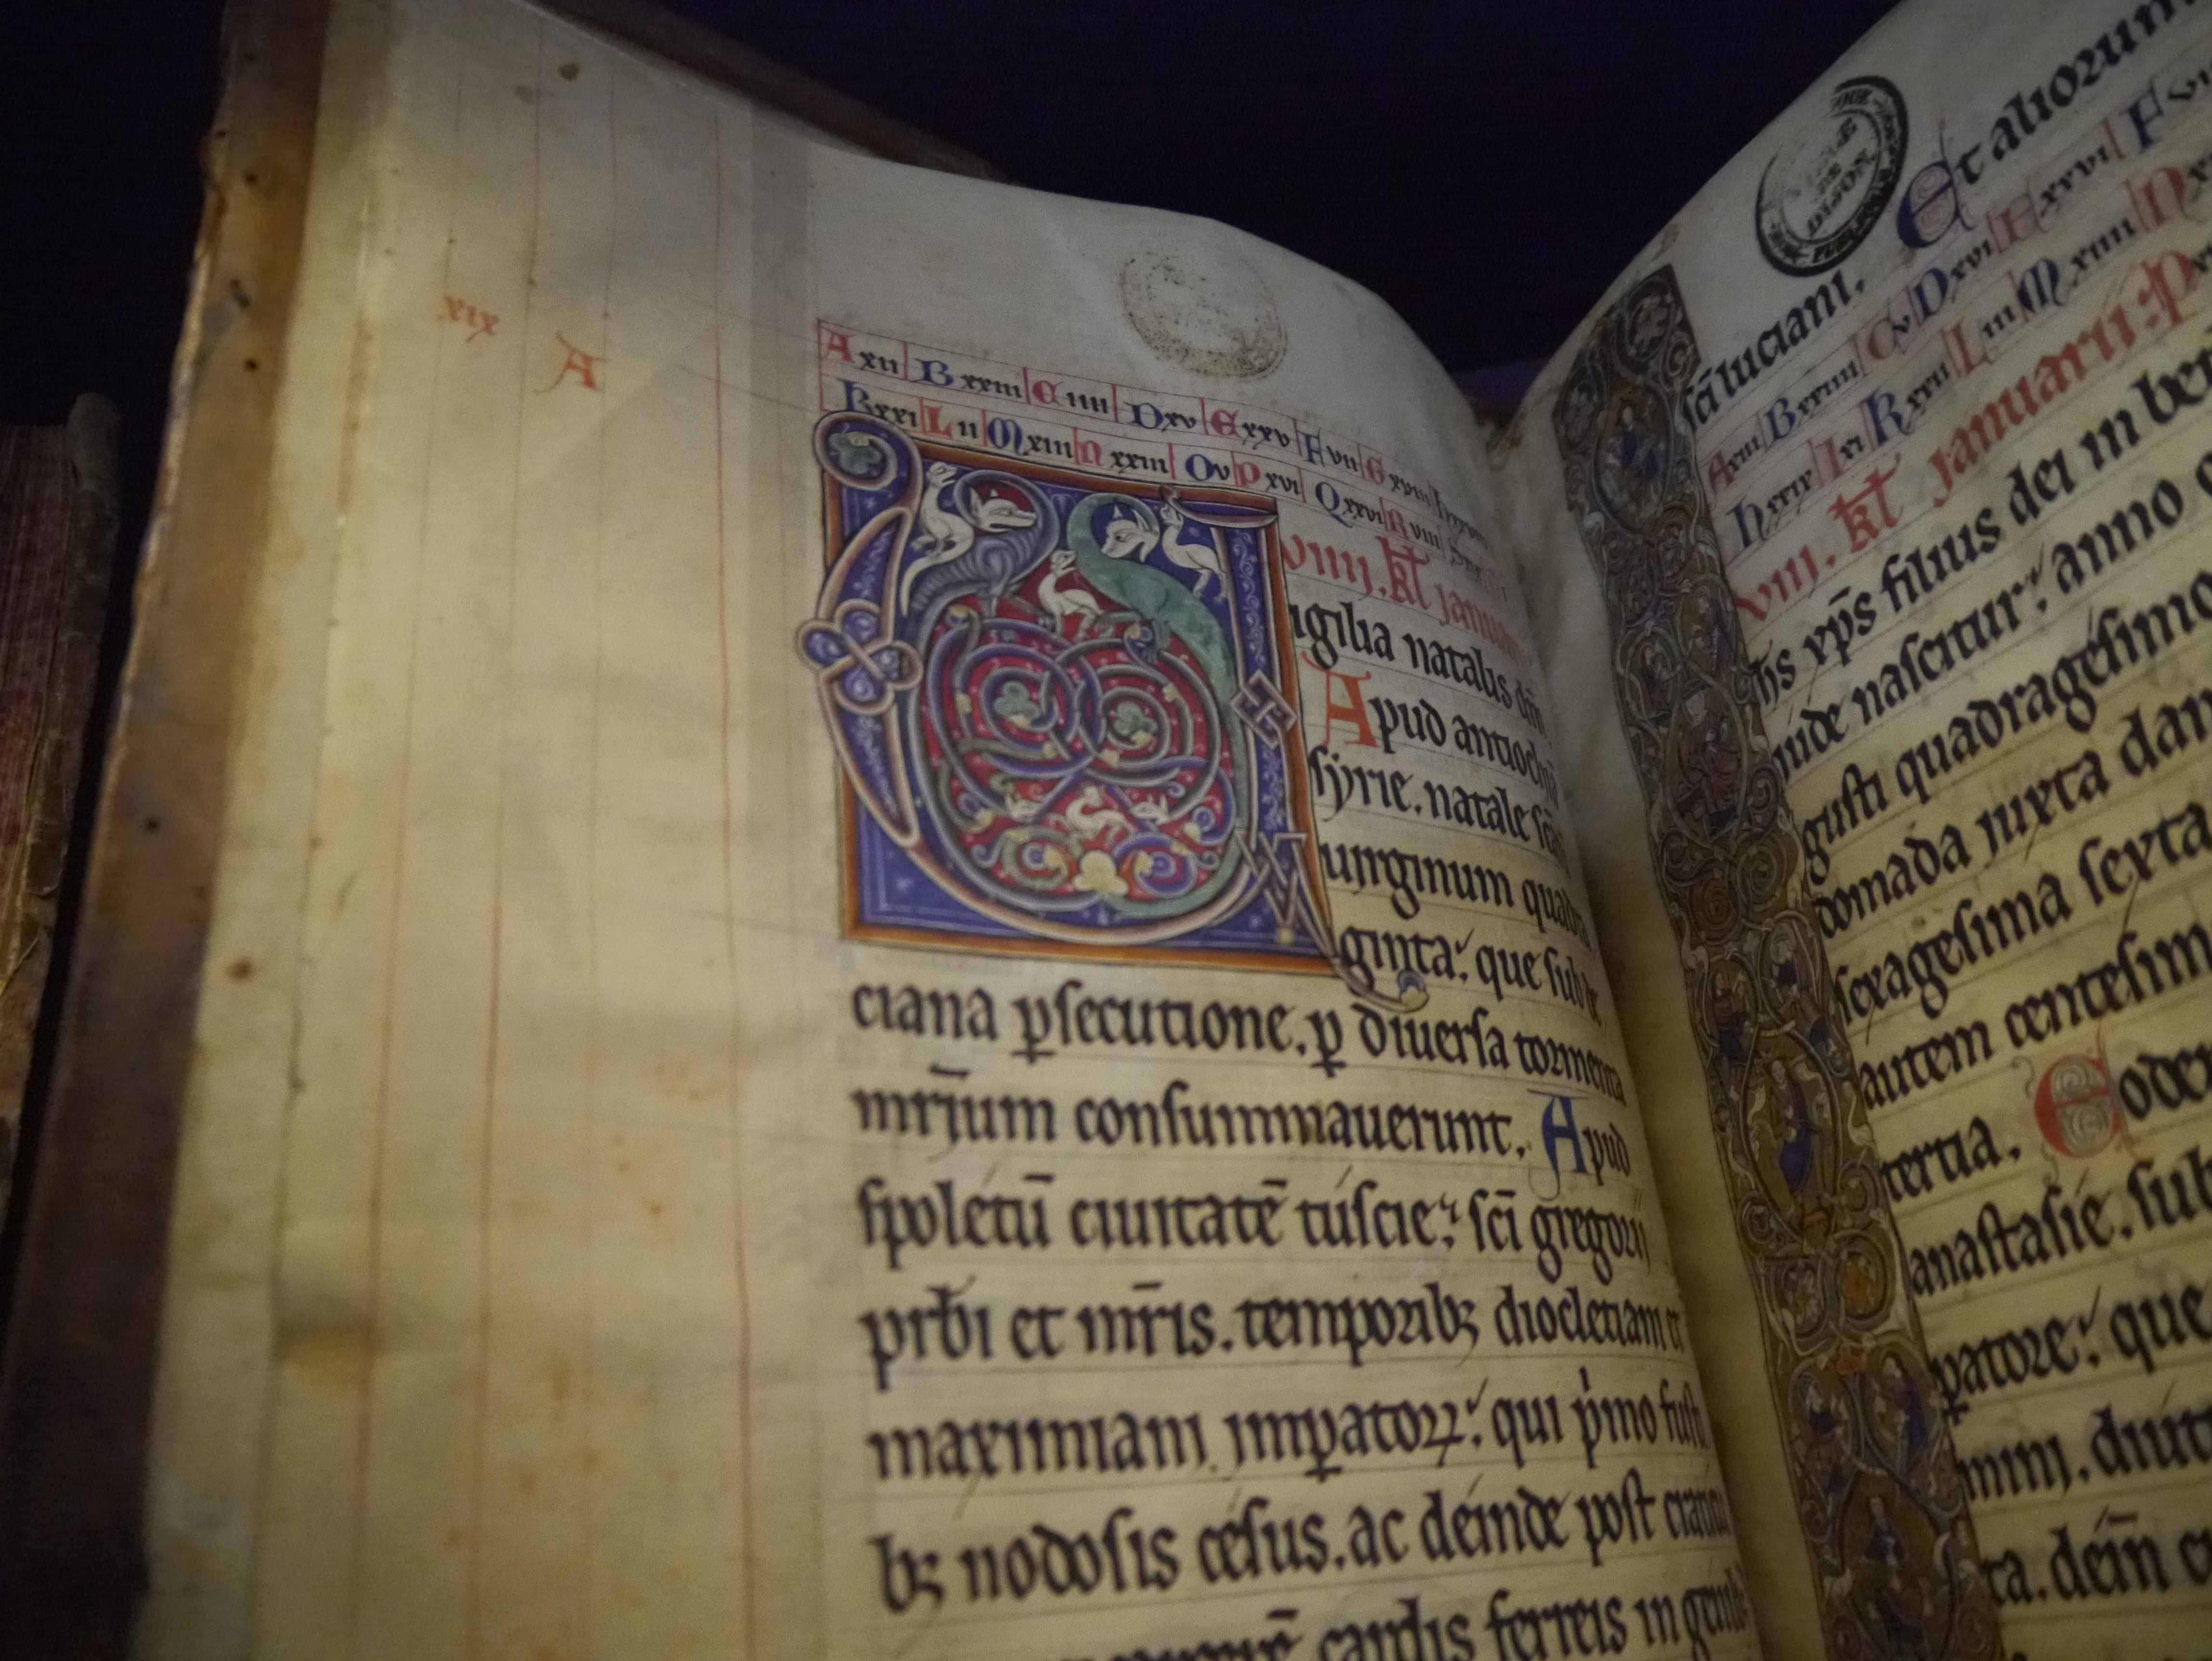 xix
A
A xii B xxiii C iiii D xv E xxv F vii G xviii
K xxi L ii M xiii N xxiii O v P xvi Q xxvi R viii
viiii. kł januarii
igilia natalis dñi
Apud antiochiā
syrie. natale scāꝝ
uirginum quadra
ginta: que sub de
ciana ꝑsecutione. ꝑ diuersa tormenta
mr̄ium consummauerunt. Apud
spoletū ciuitatē tuscie: sc̄i gregorii
prb̄i et mr̄is. temporibꝫ diocletiani et
maximiani imꝑatoꝝ: qui pͥmo fusti
bꝫ nodosis cesus. ac deinde post craticu
cardis ferreis in genib
Et aliorum
sc̄i luciani.
C v D xvi E xxvi F vii
A xiii B xxiiii
L iii M xiiii N
h xxix I xi K xxii
viii. kł januarii: P
ih̄s xp̄s filius dei in beth
iude nascitur: anno
gusti quadragesimo
domada juxta dan
sexagesima sexta
autem centesim
tertia. Eodem
anastasie. sub
ꝑatore: que
mini. diut
ta. dein c
DIJON